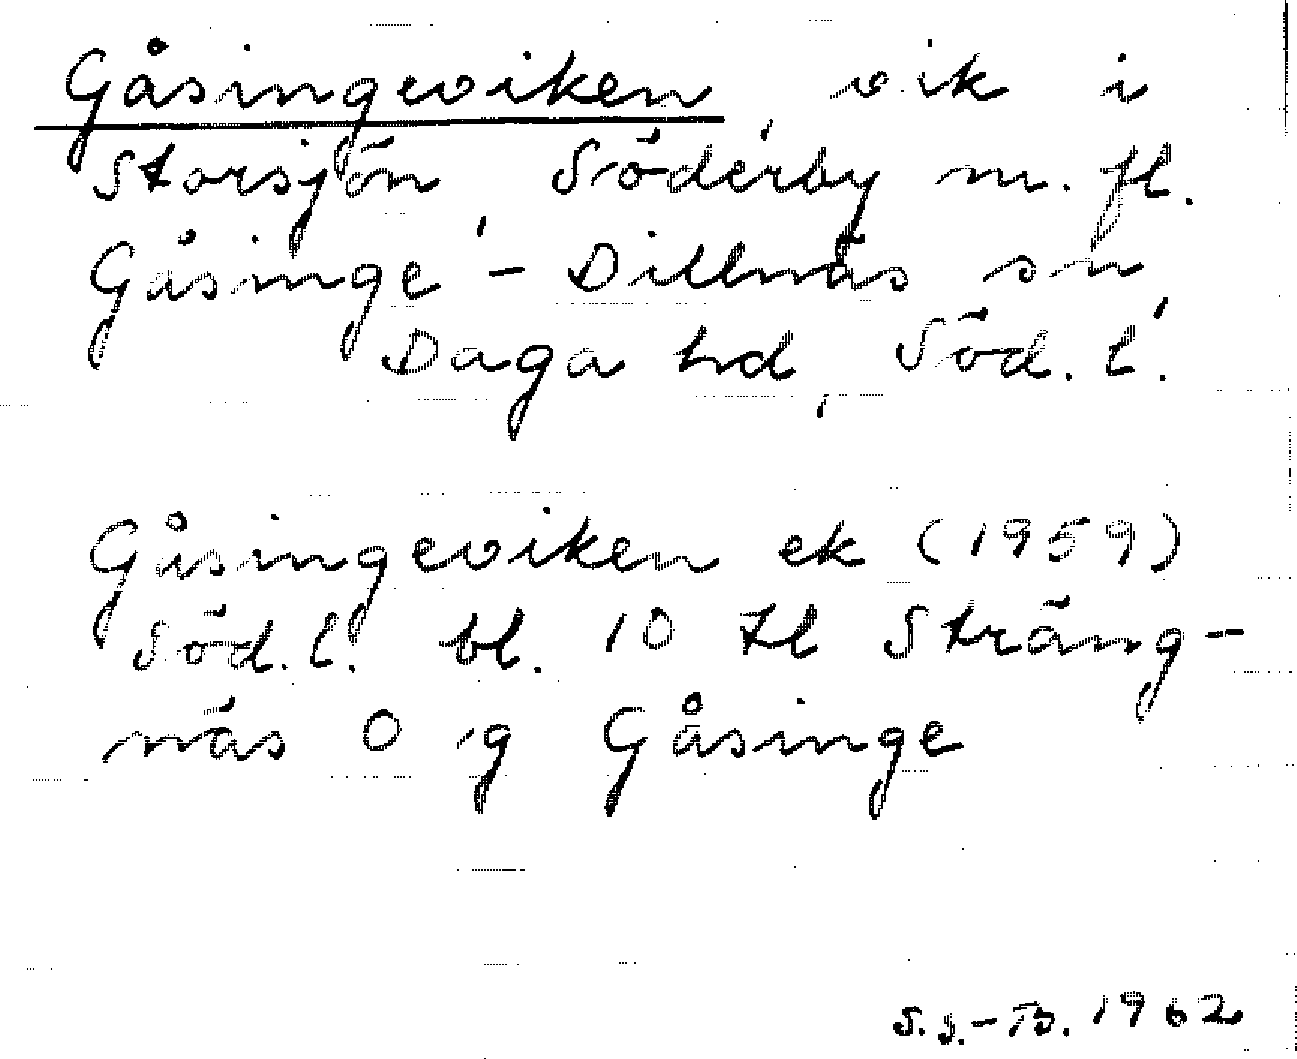 Gåsingeviken, vik i
Storsjön, Söderby m. fl.
Gåsinge-Dillnäs sn,
Daga hd, Söd. l.
Gåsingeviken ek (1959)
Söd. l. bl. 10 tl Sträng-
näs O ig Gåsinge
S.J.-B. 1962